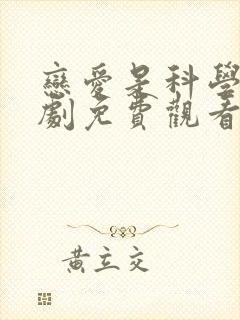 戀愛是科學
劇免費觀看
黃立交